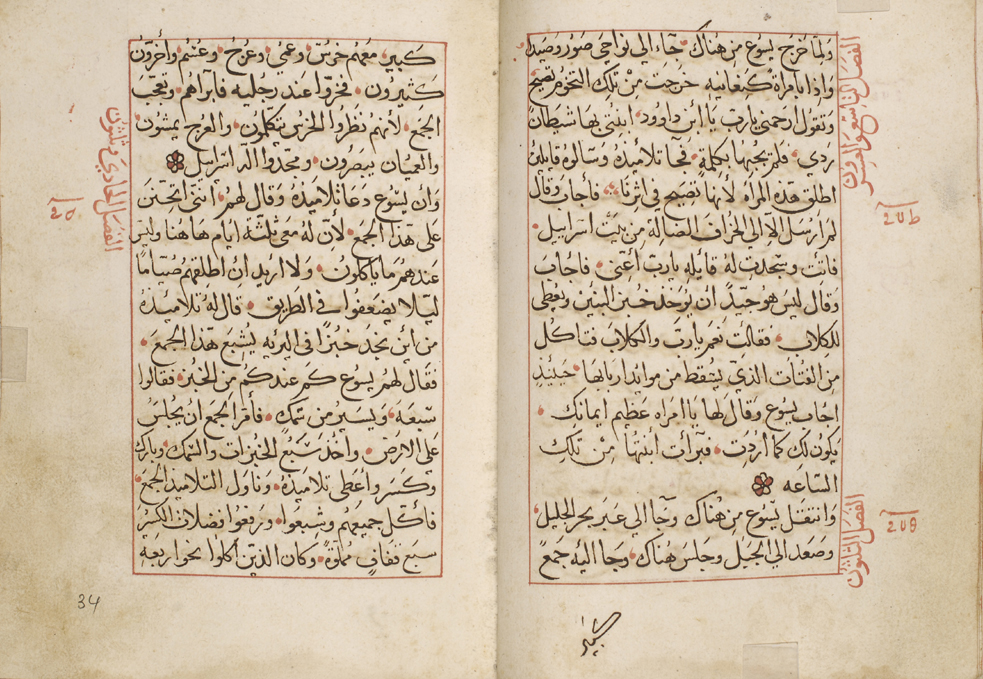 ولما خرج يسوع من هناك جاء الى نواحي صور وصيدا
واذا بامراة كنعانيه خرجت من تلك التخوم تصيح
وتقول ارحمني يا رب يا ابن داوود ابنتي بها شيطان
ردي فلم يجبها بكلمة فجا تلاميذه وسالوه قايلين
اطلق هذه المراه لانها تصيح في اثرنا فاجاب وقال
لم ارسل الا الي الخراف الضالة من بيت اسراييل
فاتت وسجدت له قايله يارب أعني فاجاب
وقال ليس هو جيد ان يوخذ خبز البنين ويعطى
للكلاب فقالت نعم يارب والكلاب تاكل
من الفتات الذي يسقط من موايد اربابها حينيذ
اجاب يسوع وقال لها يا امراه عظيم ايمانك
يكون لك كما اردت فبرات ابنتها من تلك
الساعه
وانتقل يسوع من هناك وجا الي عبر بحر الجليل
وصعد الي الجبل وجلس هناك وجا اليه جمع
الفصل التاسع والعشرون
الفصل الثلثون
كبير
كبير معهم خرس وعمي وعرج وعسم واخرون
كثيرون فخروا عند رجليه فابراهم وتعجب
الجمع لانهم نظروا الخرس يتكلمون والعرج يمشون
والعميان يبصرون ومجدوا اله اسراييل
وان يسوع دعا تلاميذه وقال لهم انني اتحنن
على هذا الجمع لان له معي ثلثة ايام هاهنا وليس
عندهم ما ياكلون ولا اريد ان اطلقهم صياما
ليلا يضعفوا في الطريق قال له تلاميذه
من أين نجد خبزا في البريه يشبع هذا الجمع
فقال لهم يسوع كم عندكم من الخبز فقالوا
سبعه ويسير من سمك فأمر الجمع ان يجلس
على الارض واخذ سبع الخبزات والسمك وبارك
وكسر واعطى تلاميذه وناول التلاميذ الجمع
فأكل جميعهم وشبعوا ورفعوا فضلات الكسر
سبع قفاف مملوة وكان الذين اكلوا نحو اربعه
الفصل الحادي وثلثون
34